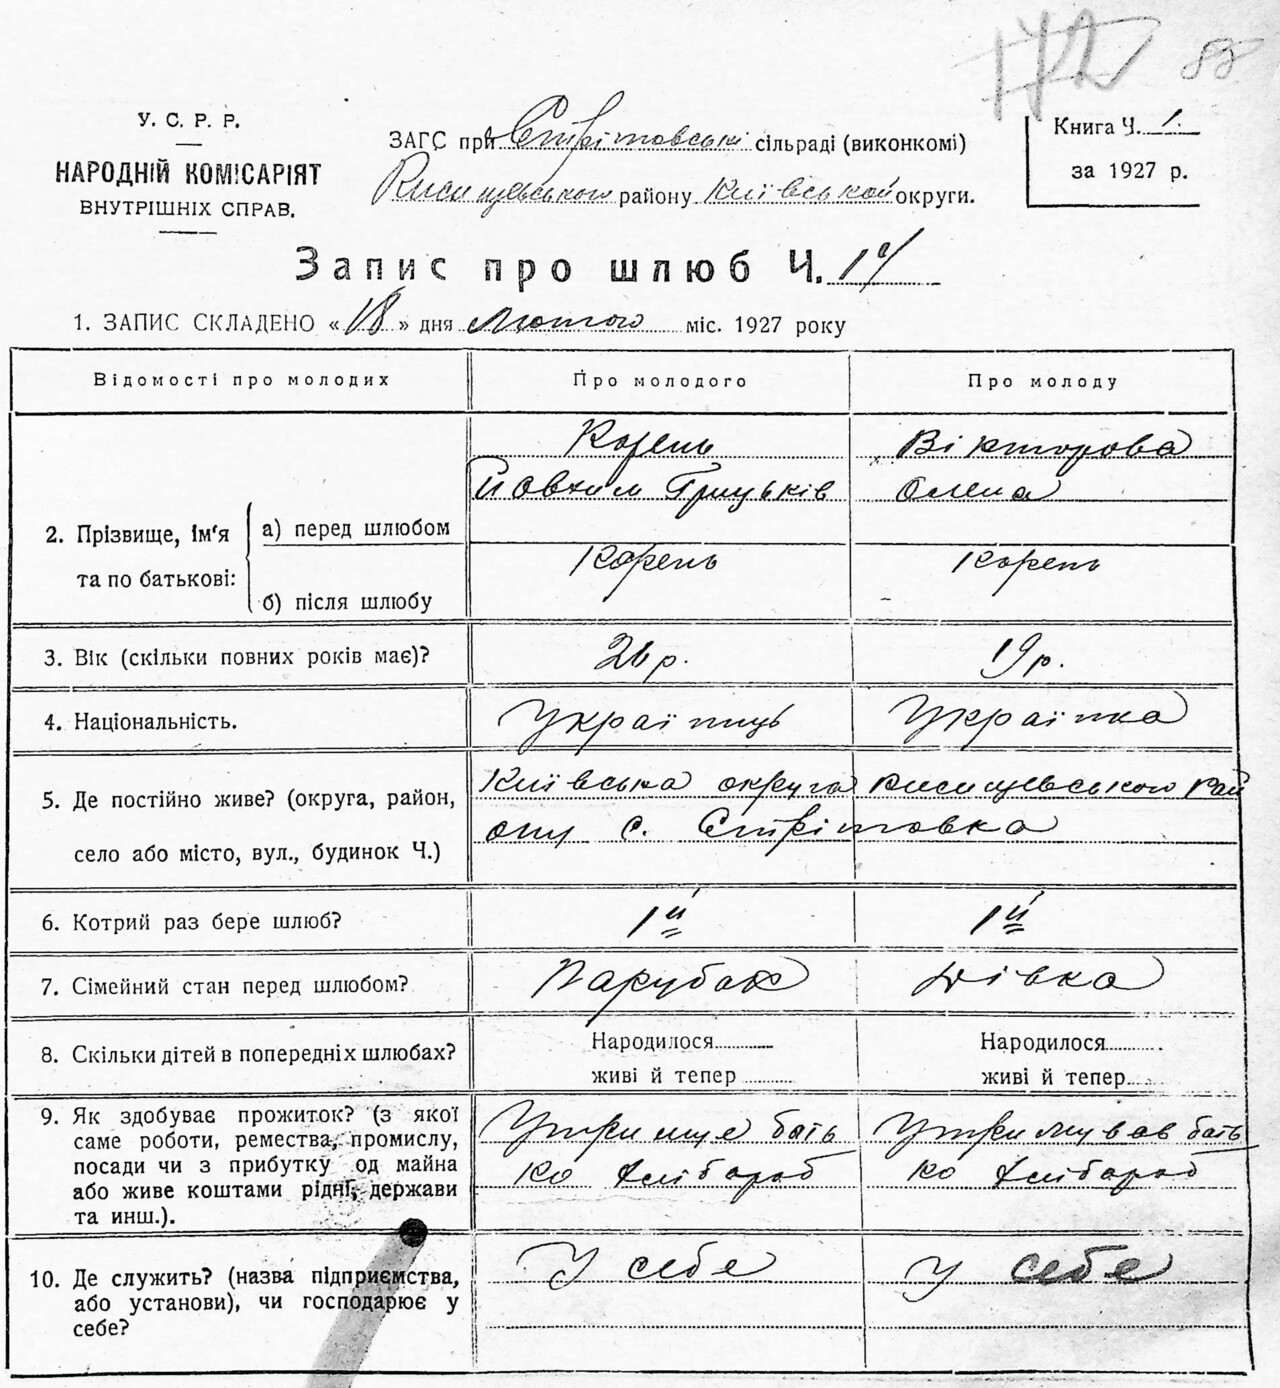 172 88
У. С. Р. Р.
НАРОДНІЙ КОМІСАРІЯТ
ВНУТРІШНІХ СПРАВ.
ЗАГС при Стрітовські сільраді (виконкомі)
Кисищевського району Київської округи.
Книга Ч. 1.
за 1927 р.
Запис про шлюб Ч. 14
1. ЗАПИС СКЛАДЕНО «18» дня Лютого міс. 1927 року
Відомості про молодих Про молодого Про молоду
2. Прізвище, ім'я та по батькові:
а) перед шлюбом
Корень
Йовхим Грицьків
Вікторова
Олена
б) після шлюбу
Корень Корень
3. Вік (скільки повних років має)? 26 р. 19 р.
4. Національність. Українць Українка
5. Де постійно живе? (округа, район,
село або місто, вул., будинок Ч.)
Київська округа Кисищевського Рай
ону с. Стрітовка
6. Котрий раз бере шлюб? 1й 1й
7. Сімейний стан перед шлюбом? Парубок Дівка
8. Скільки дітей в попередніх шлюбах?
Народилося
живі й тепер
Народилося
живі й тепер
9. Як здобуває прожиток? (з якої
саме роботи, ремества, промислу,
посади чи з прибутку од майна
або живе коштами рідні, держави
та инш.).
Утримує бать
ко хлібороб
Утримував бать
ко хлібороб
10. Де служить? (назва підприємства,
або установи), чи господарює у
себе?
У себе
У себе